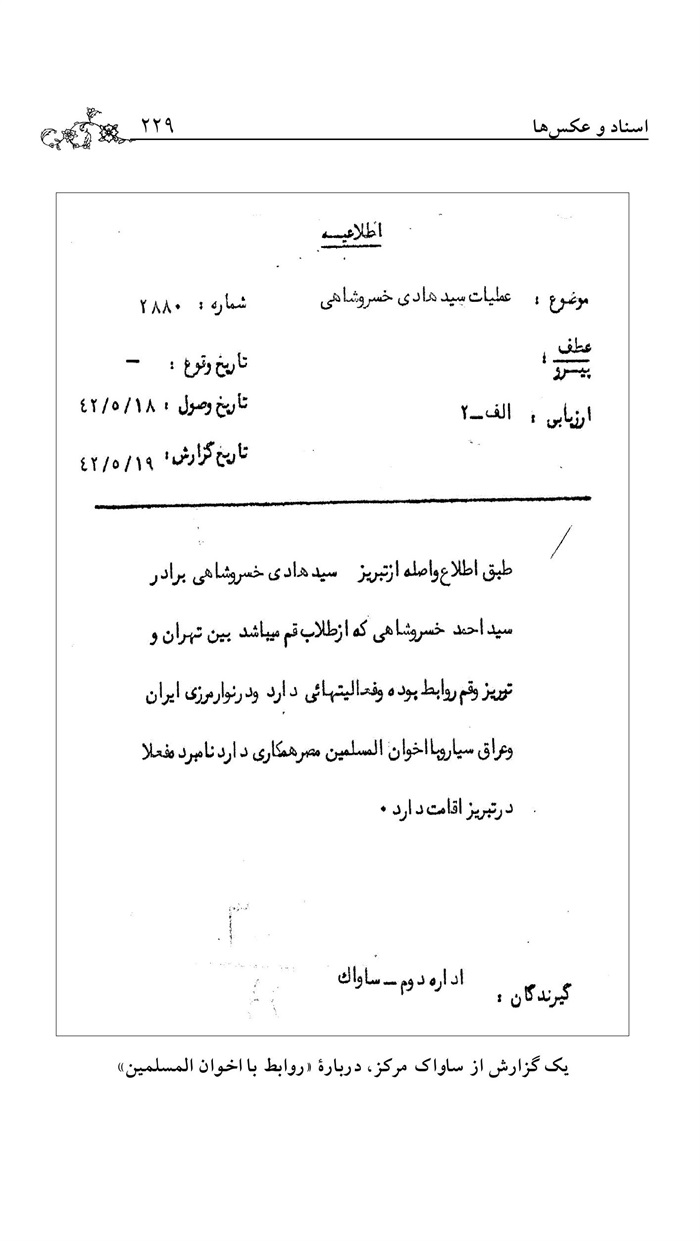 اسناد و عکس‌ها ۲۲۹
اطلاعیـــه
موضوع : عملیات سید هادی خسروشاهی
شماره : ۲۸۸۰
عطف
پیـرو :
تاریخ وقوع : –
ارزیابی : الف ـ ۲
تاریخ وصول : ٤٢/٥/١٨
تاریخ گزارش : ٤٢/٥/١٩
طبق اطلاع واصله از تبریز سید هادی خسروشاهی برادر
سید احمد خسروشاهی که از طلاب قم میباشد بین تهران و
تبریز و قم روابط بوده و فعالیتهائی دارد و در نوار مرزی ایران
و عراق سیار و با اخوان المسلمین مصر همکاری دارد نامبرده فعلا
در تبریز اقامت دارد ۰
گیرندگان : اداره دوم ــ ساواك
یک گزارش از ساواک مرکز، دربارهٔ «روابط با اخوان المسلمین»